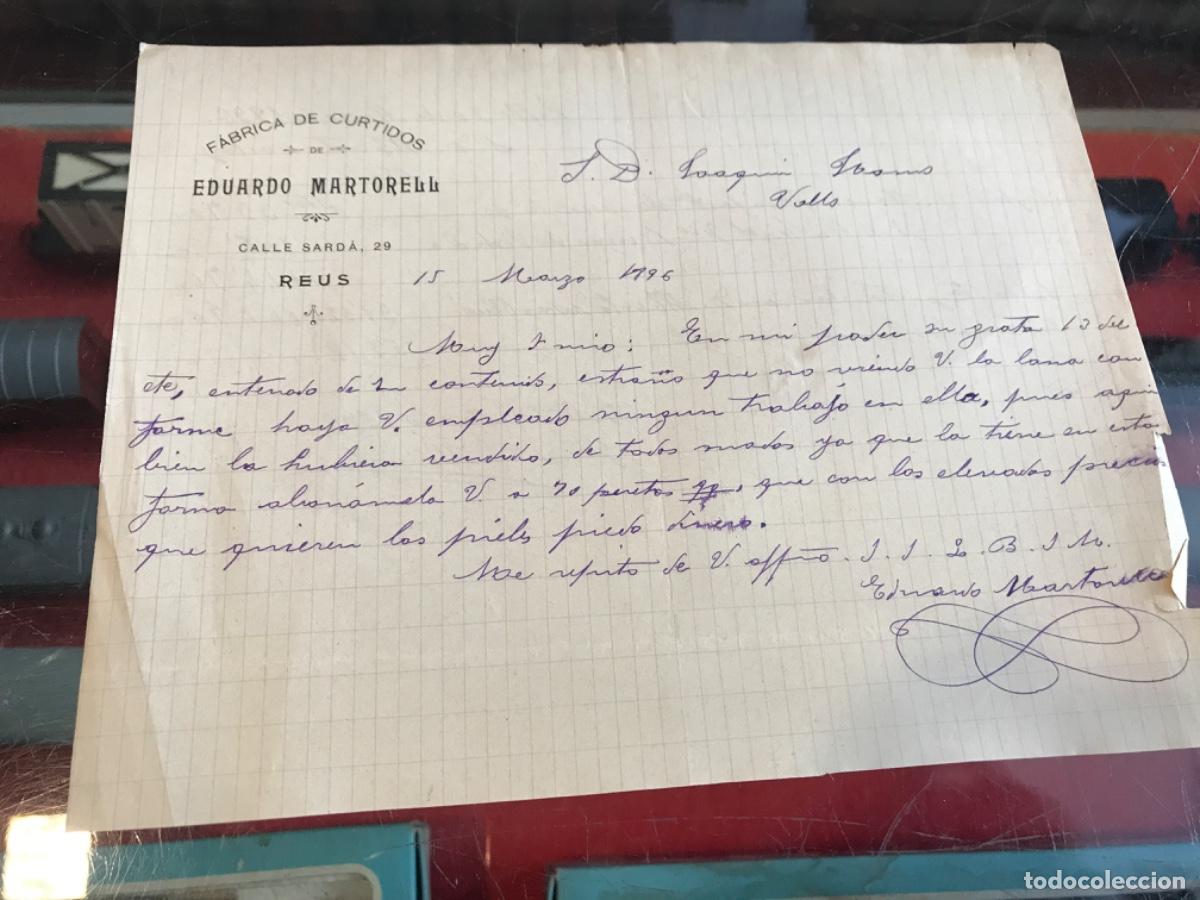 FÁBRICA DE CURTIDOS
DE
EDUARDO MARTORELL
CALLE SARDÁ, 29
REUS
S. D. Joaquin
Valls
15 Marzo 1896
Muy S mio: En mi poder su grata 13 del
cte, enterado de su contenido, extraño que no viendo V. la lana con
forme haya V. empleado ningun trabajo en ella, pues aqui
bien la hubiera vendido, de todos modos ya que la tiene en esta
forma abonámela V. a 70 pesetas, que con los elevados precios
que quieren las pieles pierdo dinero.
Me repito de V. affmo. S. S. Q. B. S. M.
Eduardo Martorell
todocoleccion